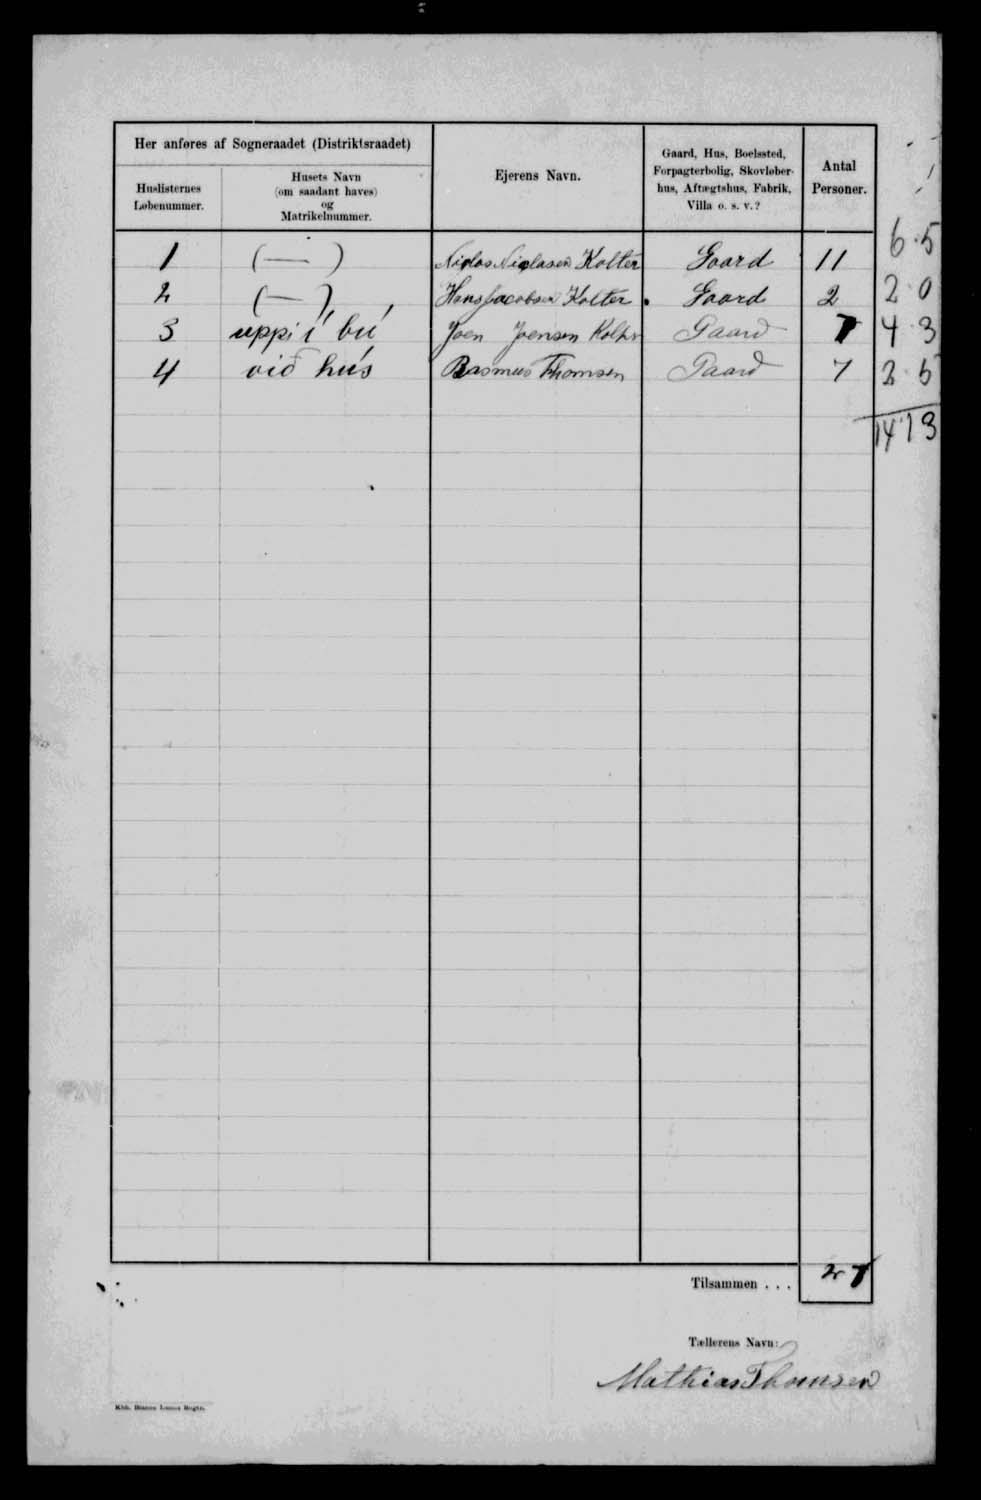 Her anføres af Sogneraadet (Distriktsraadet)
Huslisternes Løbenummer.
Husets Navn
(om saadant haves)
og
Matrikelnummer.
Ejerens Navn.
Gaard, Hus, Boelssted,
Forpagterbolig, Skovløber-
hus, Aftægtshus, Fabrik,
Villa o. s. v.?
Antal
Personer.
1 (—) Niclas Niclasen Kolter Gaard 11 6 5
2 (—) Hans Jacobsen Kolter Gaard 2 2 0
3 uppi í bú Joen Joensen Kolter Gaard 7 4 3
4 við hús Rasmus Thomsen Gaard 7 2 5
14 13
Tilsammen . . . 27
Tællerens Navn:
Mathias Thomsen
Kbh. Bianco Lunos Bogtr.